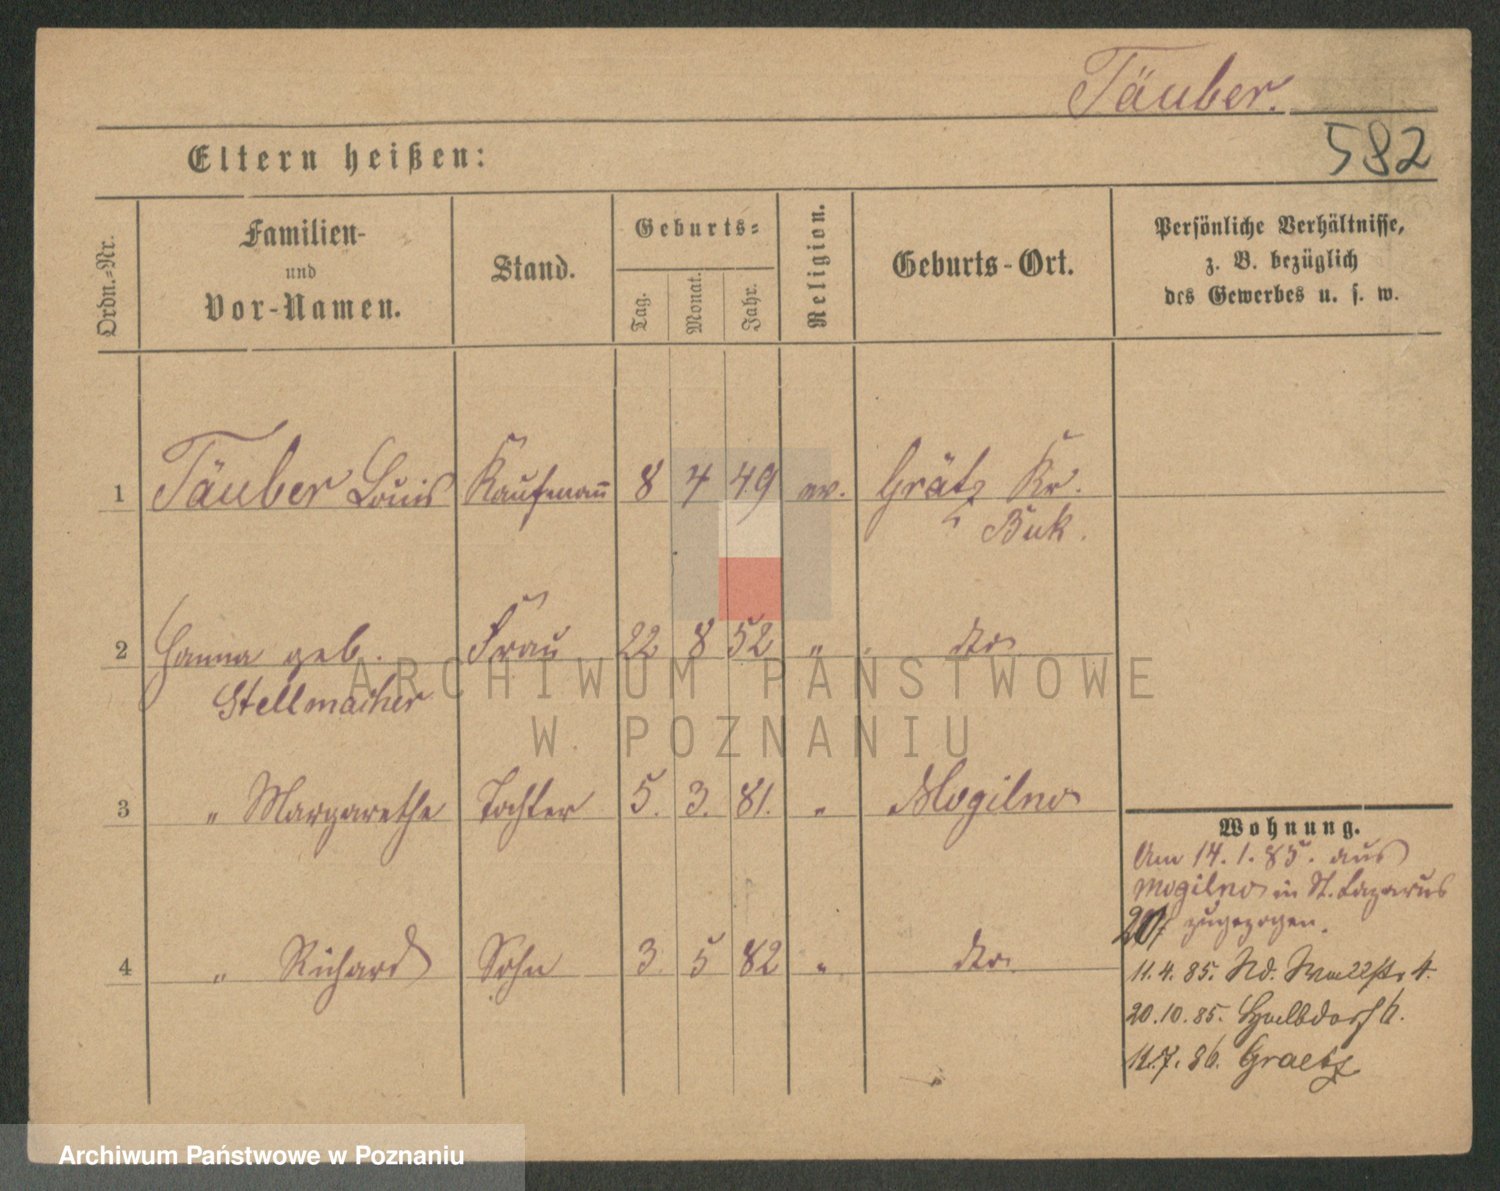 Täuber.
582
Eltern heißen:
Ordn.-Nr.
Familien-
und
Vor-Namen.
Stand.
Geburts-
Tag.
Monat.
Jahr.
Religion.
Geburts-Ort.
Persönliche Verhältnisse,
z. B. bezüglich
des Gewerbes u. s. w.
1 Täuber Louis Kaufmann 8 4 49 ev. Grätz Kr.
Buk.
2 Hanna geb. Frau 22 8 52 " dto.
Stellmacher
3 " Margarethe Tochter 5. 3. 81. " Mogilno
4 " Richard Sohn 3. 5 82 " dto.
Wohnung.
Am 14.1.85. aus
Mogilno in St. Lazarus
zugezogen.
11.4.85. Nd. Wallstr 4.
20.10.85. Halbdorf 6.
7.86. Graetz
ARCHIWUM PAŃSTWOWE
W POZNANIU
Archiwum Państwowe w Poznaniu